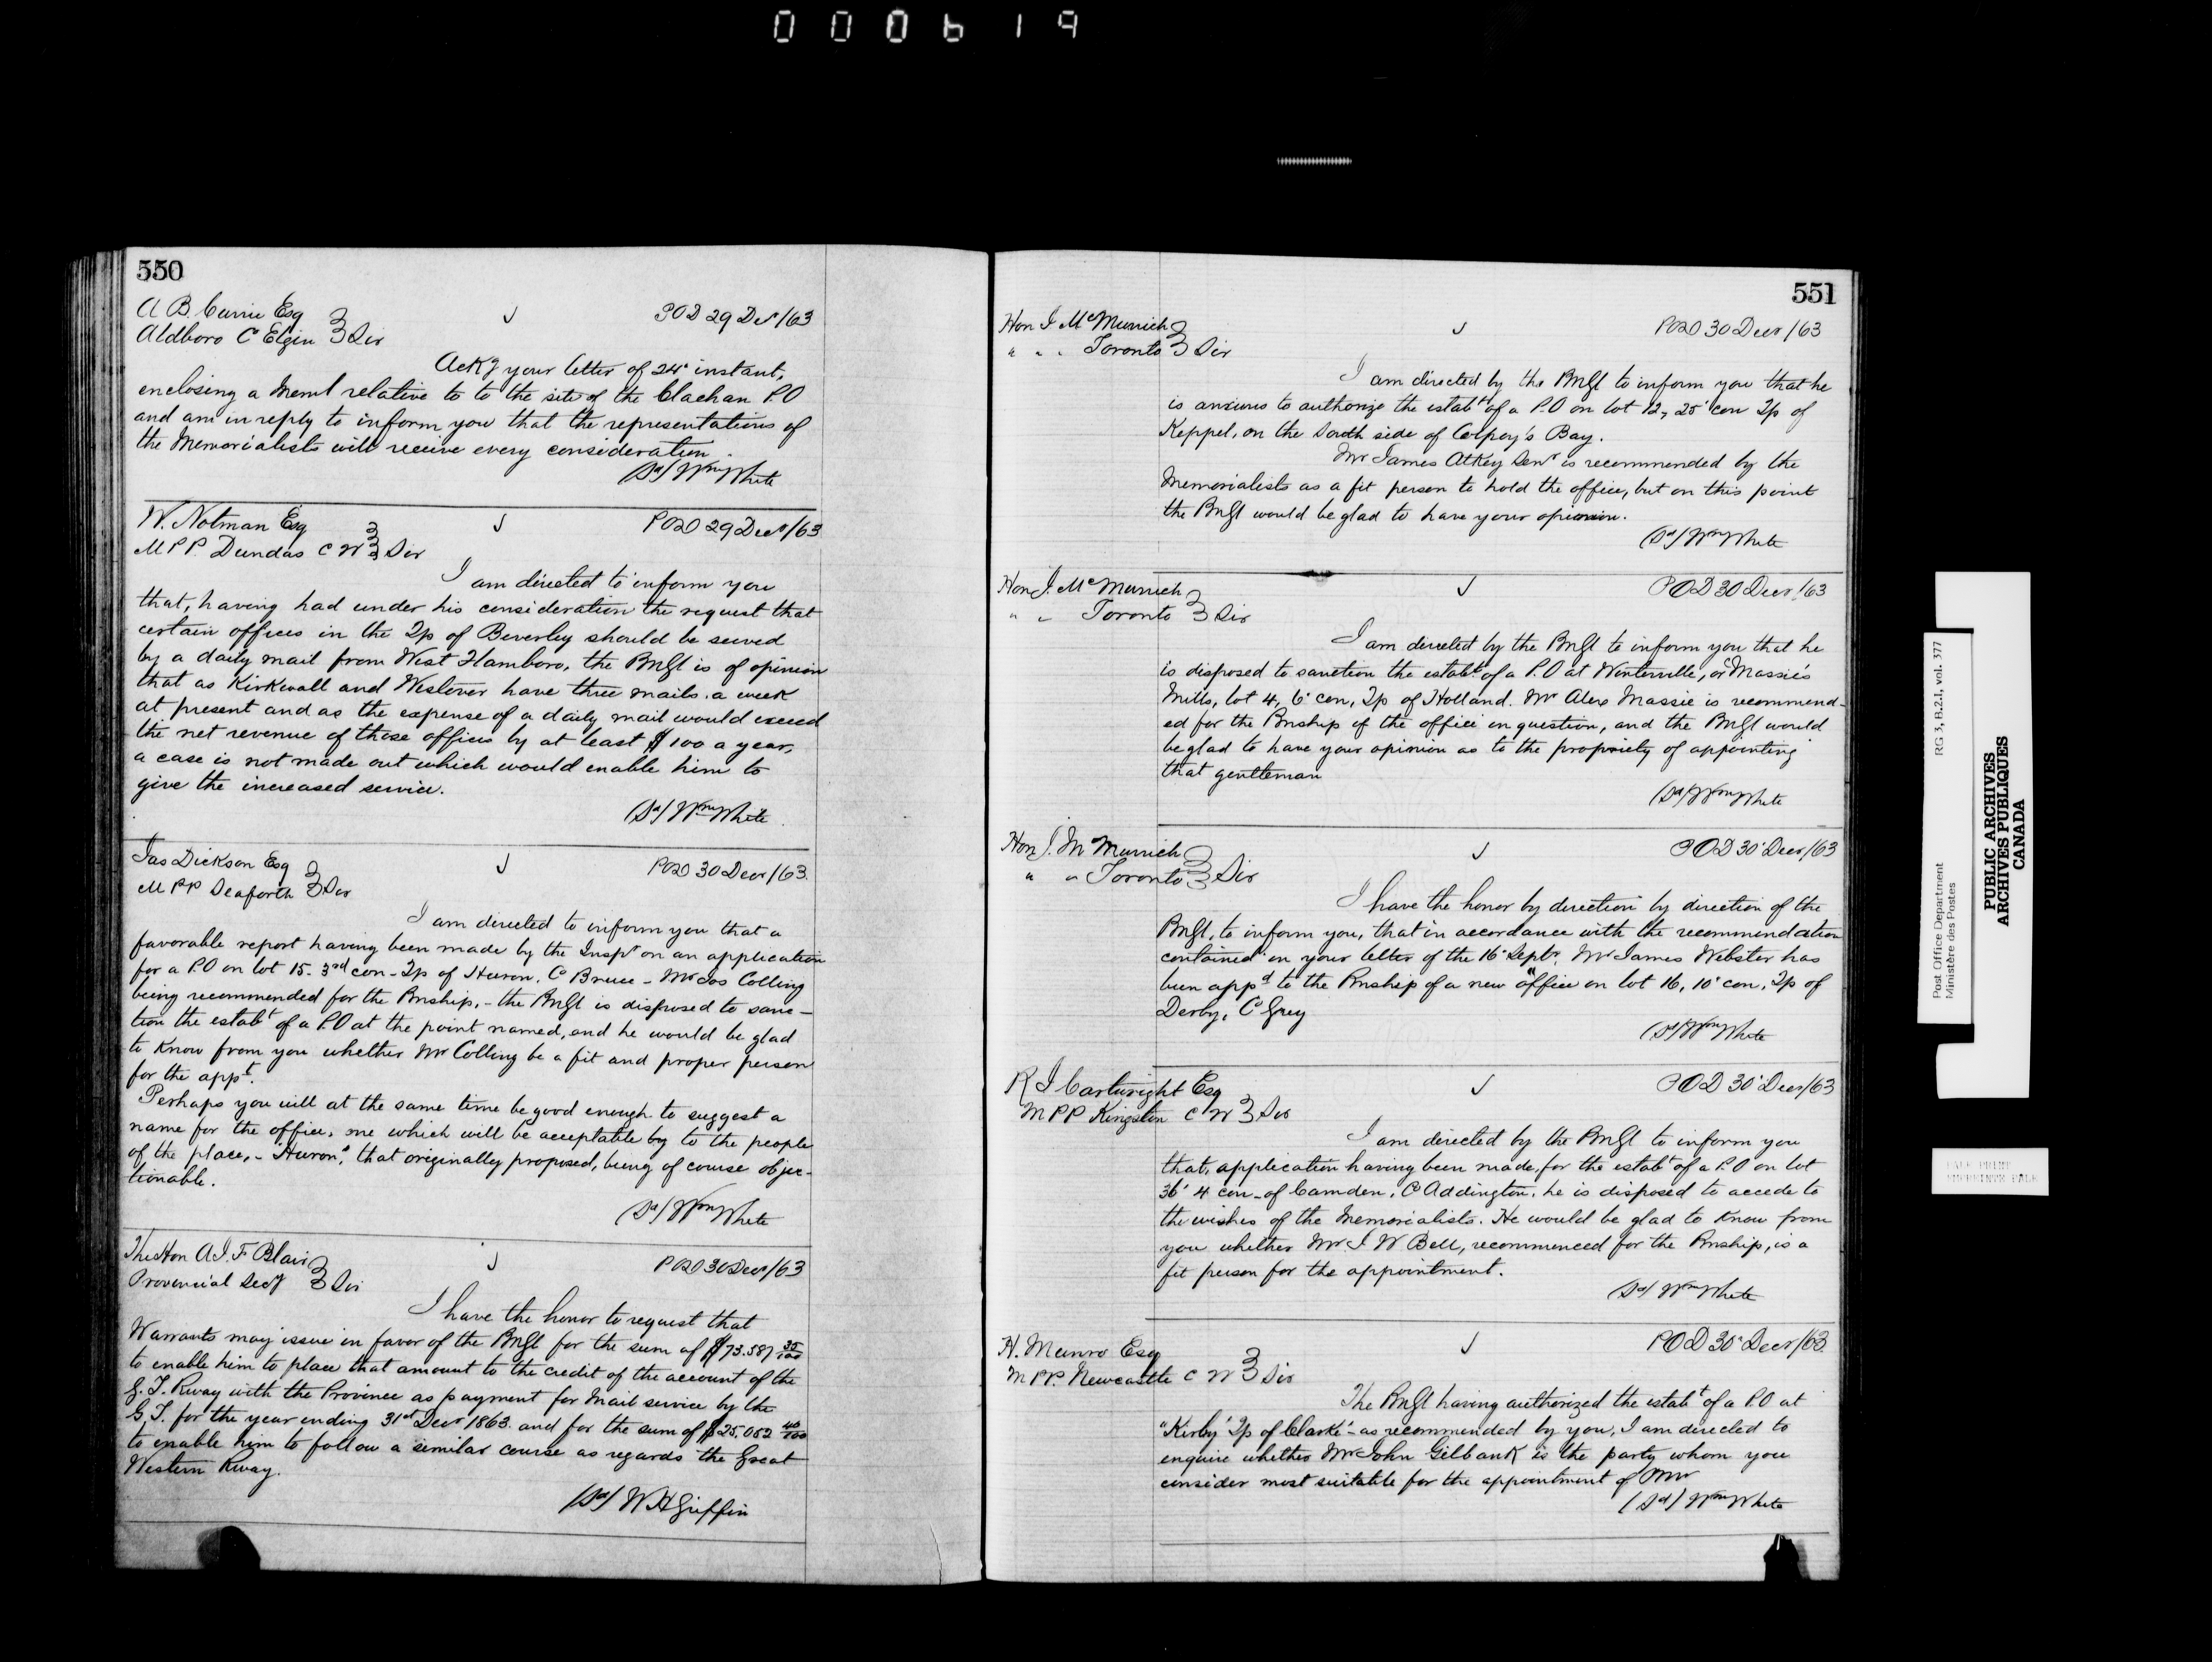 000619
550
A B. Currie Esq
Aldboro Co Elgin } Sir
✓
POD 29 Decr/63
Ackg your letter of 24' instant,
enclosing a Meml relative to to the site of the Clachan P.O
and am in reply to inform you that the representations of
the Memorialists will receive every consideration.
(Sd) Wm White
W. Notman Esq
M P.P. Dundas C W } Sir
✓
POD 29 Decr/63
I am directed to inform you
that, having had under his consideration the request that
certain offices in the Tp of Beverley should be served
by a daily mail from West Flamboro, the PMGl is of opinion
that as Kirkwall and Westover have three mails a week
at present and as the expense of a daily mail would exceed
the net revenue of those offices by at least $100 a year,
a case is not made out which would enable him to
give the increased service.
(Sd) Wm White
Jas Dickson Esq
M PP Seaforth } Sir
✓
POD 30 Decr/63.
I am directed to inform you that a
favorable report having been made by the Inspr on an application
for a P.O on lot 15. 3rd con - Tp of Huron. Co Bruce - Mr Jos Colling
being recommended for the Pmship, - the PMGl is disposed to sanc-
tion the estabt of a P.O at the point named, and he would be glad
to know from you whether Mr Colling be a fit and proper person
for the appt.
Perhaps you will at the same time be good enough to suggest a
name for the office, one which will be acceptable by to the people
of the place, - "Huron", that originally proposed, being of course objec-
tionable.
(Sd) Wm White
The Hon A.J.F Blair
Provincial Secy } Sir
✓
POD 30 Decr/63
I have the honor to request that
Warrants may issue in favor of the PMGl for the sum of $73.587 35/100
to enable him to place that amount to the credit of the account of the
G.T. Rway with the Province as payment for Mail service by the
G.T. for the year ending 31st Decr 1863. and for the sum of $25,052 40/100
to enable him to follow a similar course as regards the Great
Western Rway.
(Sd) W H Griffin
551
Hon J McMurrich
" " " Toronto } Sir
✓
POD 30 Decr/63
I am directed by the PMGl to inform you that he
is anxious to authorize the estabt of a P.O on lot 12, 25' con Tp of
Keppel, on the South side of Colpoy's Bay.
Mr James Atkey Senr is recommended by the
Memorialists as a fit person to hold the office, but on this point
the PMGl would be glad to have your opinion.
(Sd) Wm White
Hon J. McMurrich
" " Toronto } Sir
✓
POD 30 Decr/63
I am directed by the PMGl to inform you that he
is disposed to sanction the estabt of a P.O at Winterville, or "Massie's
Mills, lot 4, 6' con, Tp of Holland. Mr Alex Massie is recommend-
ed for the Pmship of the office in question, and the PMGl would
be glad to have your opinion as to the propriety of appointing
that gentleman
(Sd) Wm White
Hon J. McMurrich
" " Toronto } Sir
✓
POD 30' Decr/63
I have the honor by direction by direction of the
PMGl, to inform you, that in accordance with the recommendation
contained in your letter of the 16' Septr, Mr James Webster has
been appd to the Pmship of a new office on lot 16, 10' con, Tp of
Derby, Co Grey
(Sd) Wm White
R J Cartwright Esq
M PP Kingston C W } Sir
✓
POD 30' Decr/63
I am directed by the PMGl to inform you
that, application having been made, for the estabt of a P.O on lot
36' 4 con - of Camden, Co Addington, he is disposed to accede to
the wishes of the Memorialists. He would be glad to know from
you whether Mr J W Bell, recommenced for the Pmship, is a
fit person for the appointment.
(Sd) Wm White
H. Munro Esq
M PP. Newcastle C W } Sir
✓
POD 30' Decr/63.
The PMGl having authorized the estabt of a P.O at
"Kirby" Tp of Clarke' - as recommended by you, I am directed to
enquire whether Mr John Gilbank is the party whom you
consider most suitable for the appointment of PMr
(Sd) Wm White
Post Office Department
Ministère des Postes
RG 3, B.2.1, vol. 377
PUBLIC ARCHIVES
ARCHIVES PUBLIQUES
CANADA